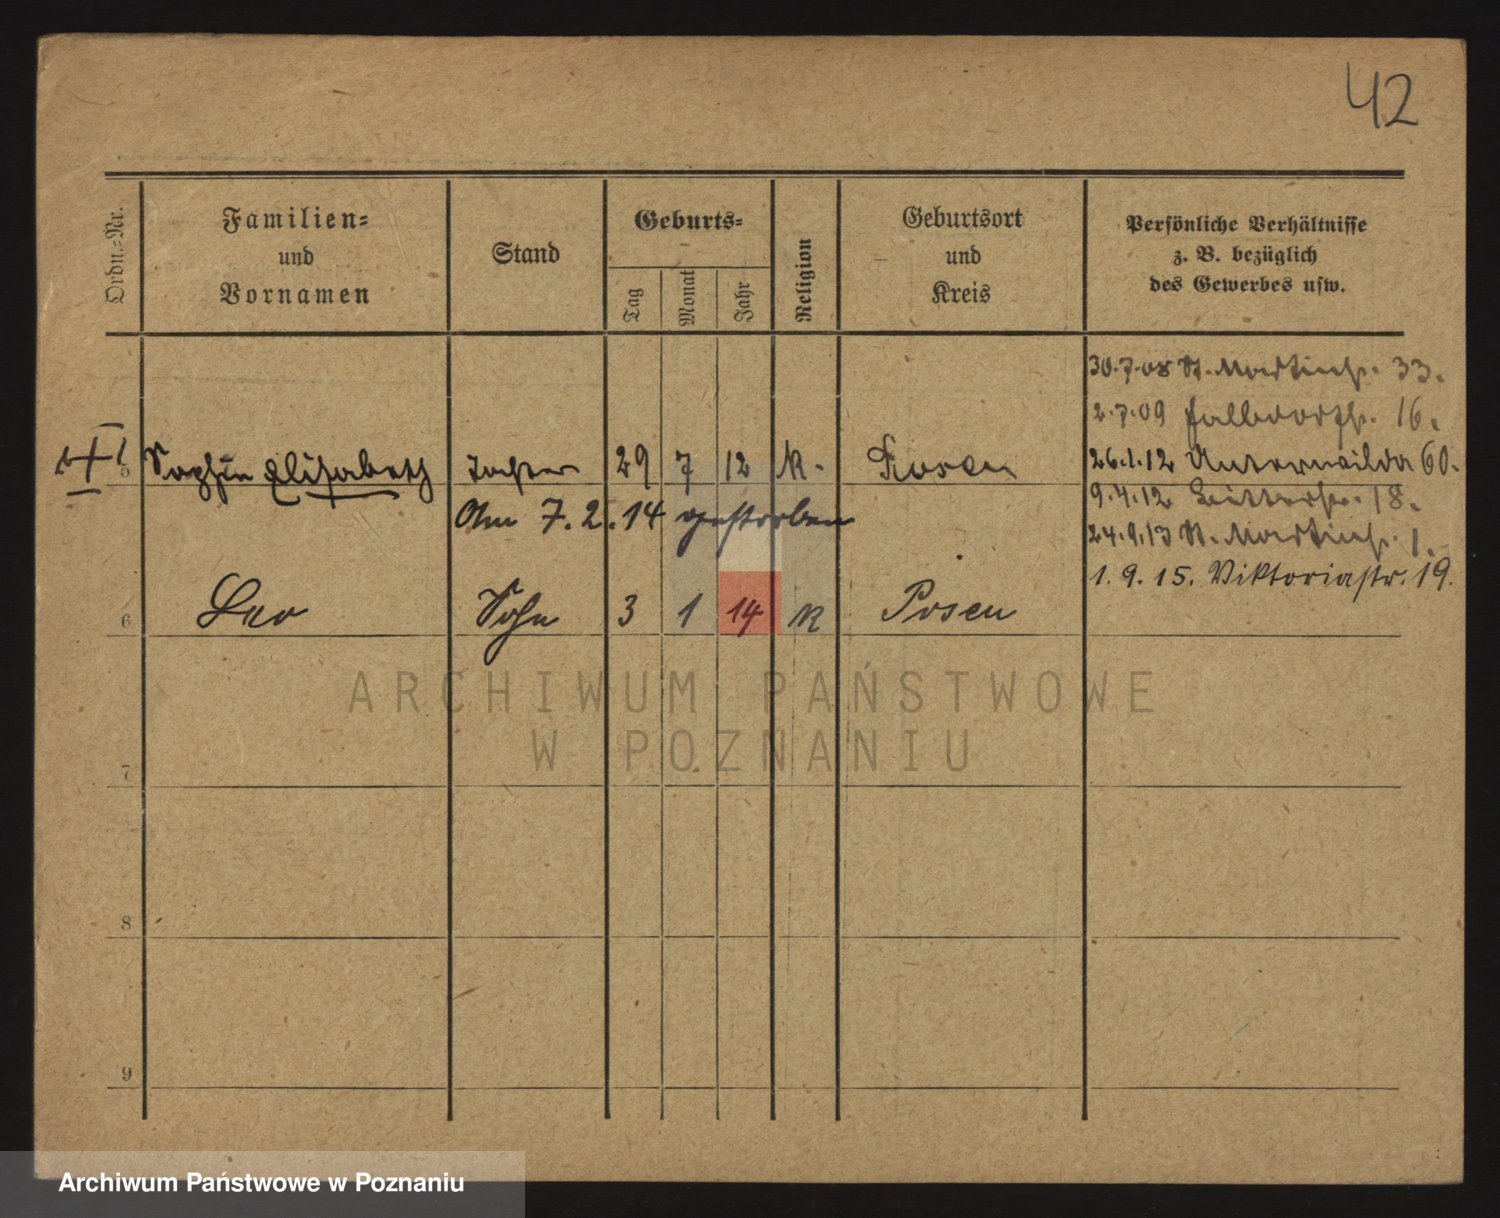 42
Ordn.=Nr.
Familien=
und
Vornamen
Stand
Geburts=
Tag
Monat
Jahr
Religion
Geburtsort
und
Kreis
Persönliche Verhältnisse
z. B. bezüglich
des Gewerbes usw.
30.7.08 St. Martinstr. 33.
2.7.09 Halbdorfstr. 16.
5 Sophie Elisabeth Tochter 29 7 12 K. Posen 26.1.12 Unterwilda 60.
Am 7.2.14 gestorben 9.4.12 Bitterstr. 18.
24.9.13 St. Martinstr. 1.
1.9.15. Viktoriastr. 19.
6 Leo Sohn 3 1 14 K Posen
ARCHIWUM PAŃSTWOWE
W POZNANIU
7
8
9
Archiwum Państwowe w Poznaniu